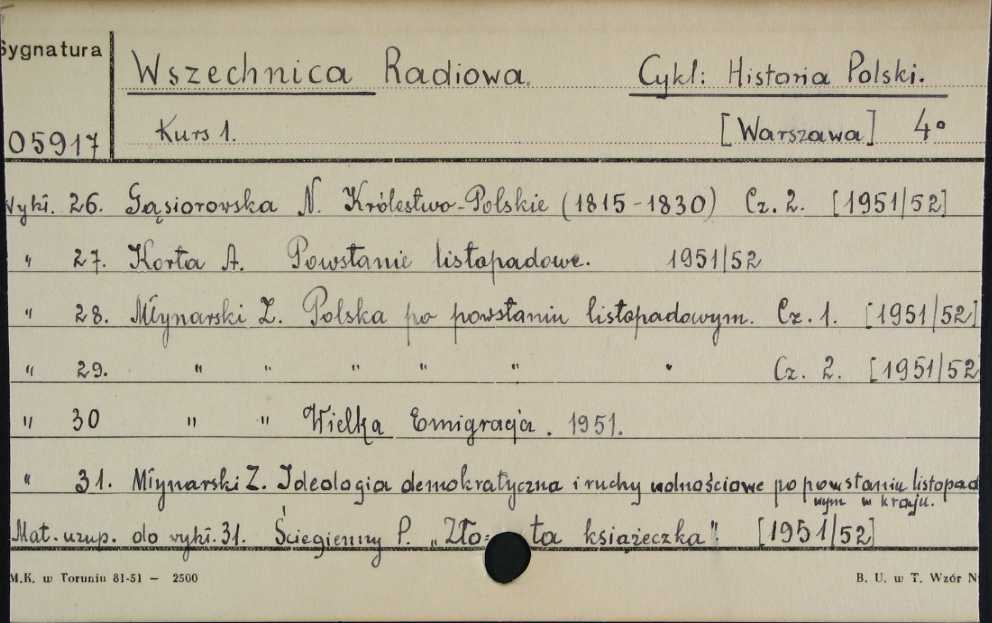 Sygnatura
Wszechnica Radiowa. Cykl: Historia Polski.
05917 Kurs 1. [Warszawa] 4°
Wykł. 26. Gąsiorowska N. Królestwo-Polskie (1815-1830) Cz. 2. [1951/52]
" 27. Korta A. Powstanie listopadowe. 1951/52
" 28. Młynarski Z. Polska po powstaniu listopadowym. Cz. 1. [1951/52]
" 29. " " " " " " Cz. 2. [1951/52
" 30 " " Wielka Emigracja. 1951.
" 31. Młynarski Z. Ideologia demokratyczna i ruchy wolnościowe po powstaniu listopad
wym w kraju.
Mat. uzup. do wykł. 31. Ściegienny P. „Zło= ta książeczka". [1951/52]
M.K. w Toruniu 81-51 — 2500 B. U. w T. Wzór N